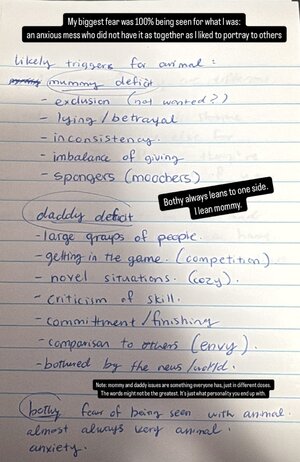 My biggest fear was 100% being seen for what I was:
an anxious mess who did not have it as together as I liked to portray to others
likely triggers for animal:
mummy deficit
- exclusion (not wanted?)
- lying / betrayal
- inconsistency.
- imbalance of giving
- spongers (moochers)
Bothy always leans to one side.
I lean mommy.
daddy deficit
- large groups of people.
- getting in the game. (competition)
- novel situations. (cozy).
- criticism of skill.
- committment / finishing
- comparison to others (envy).
- bothered by the news / world.
Note: mommy and daddy issues are something everyone has, just in different doses.
The words might not be the greatest. It's just what personality you end up with.
bothy fear of being seen with animal.
almost always very animal.
anxiety.